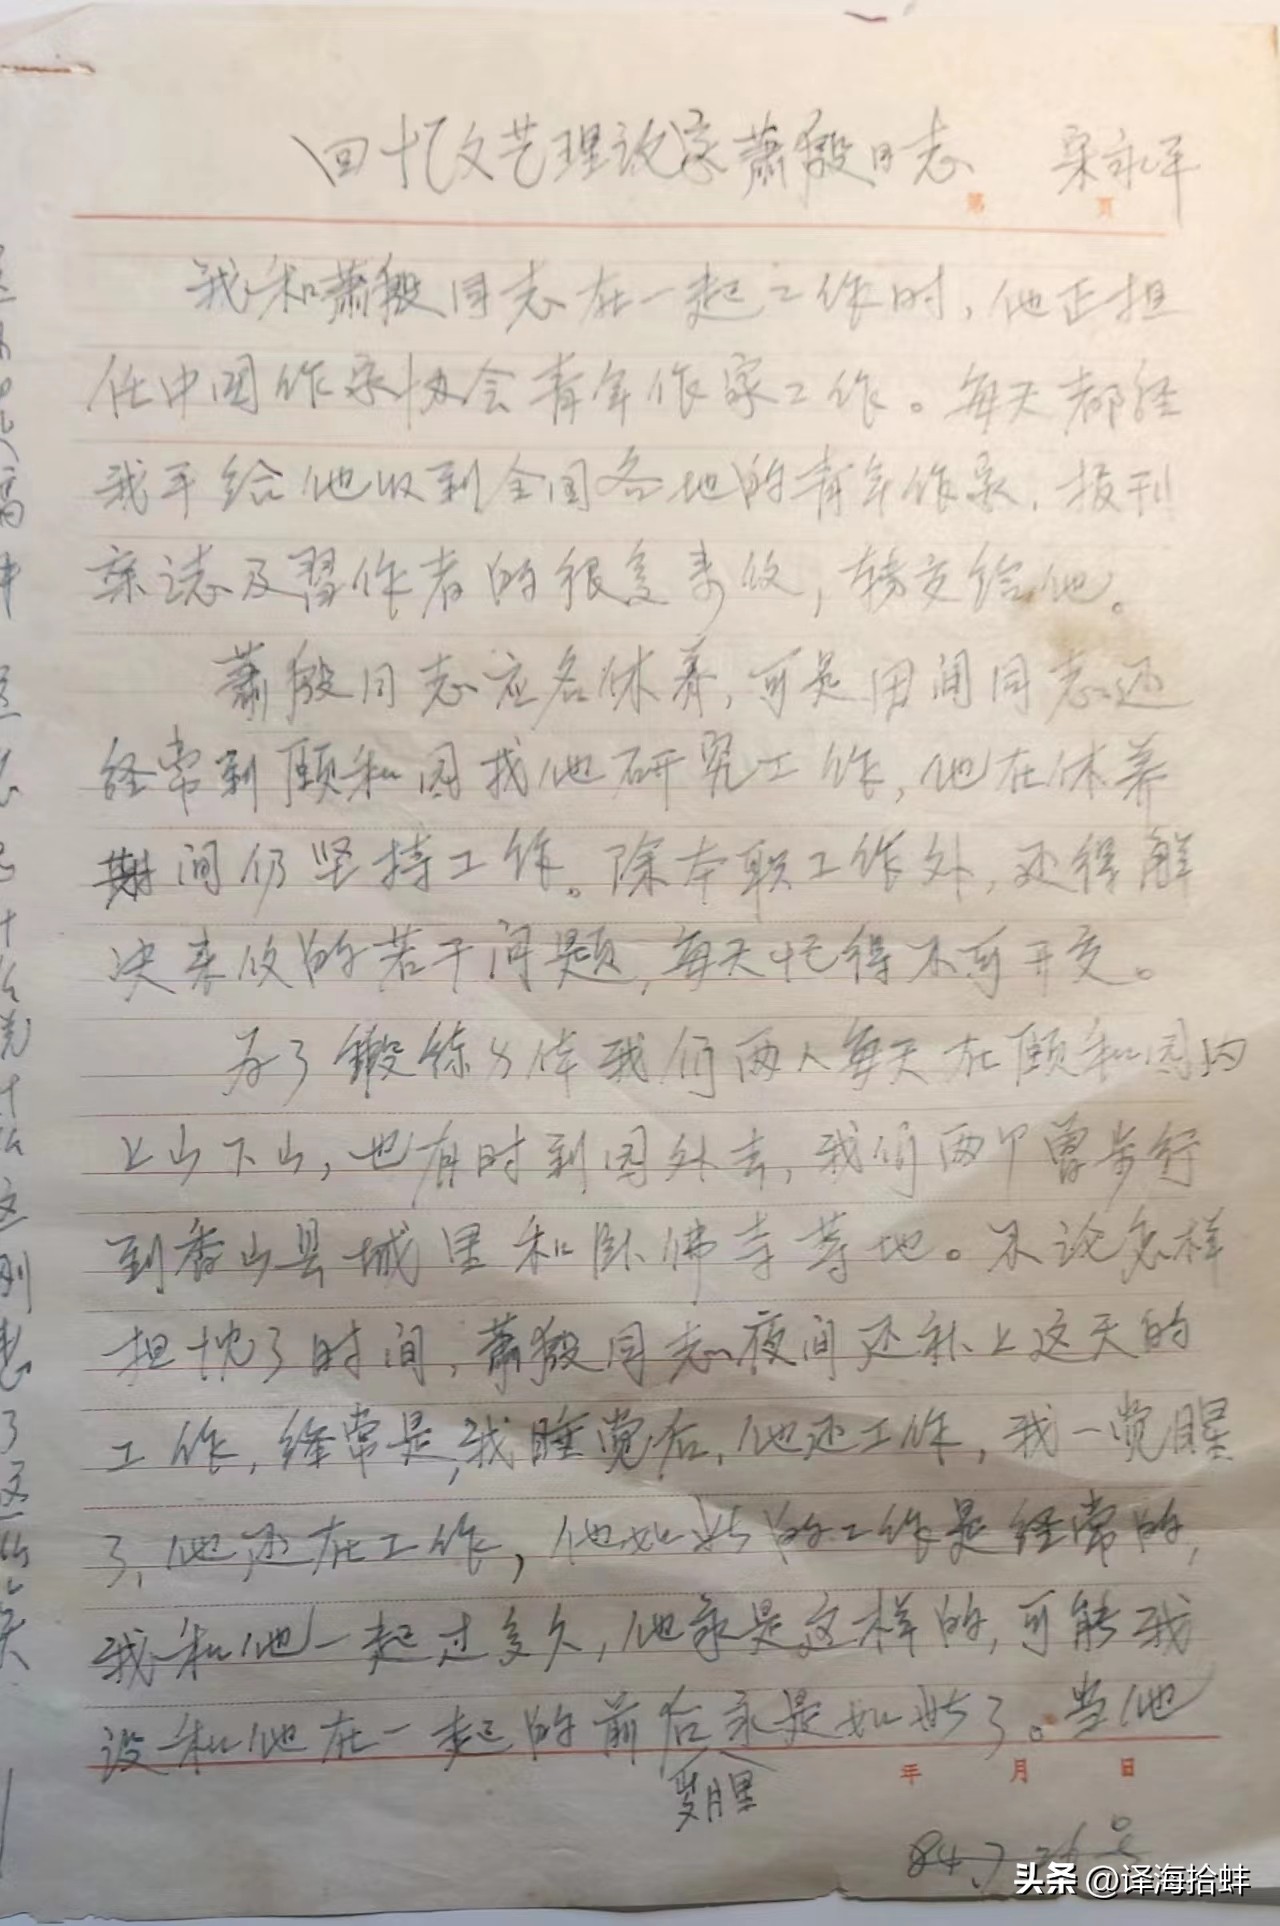 回忆文艺理论家萧殷同志 宋永平
第 页
我和萧殷同志在一起工作时，他正担
任中国作家协会青年作家工作。每天都经
我手给他收到全国各地的青年作家，报刊
杂誌及習作者的很多来信，轉交给他。
萧殷同志应名休养，可是田间同志还
经常到颐和园找他研究工作，他在休养
期间仍坚持工作。除本职工作外，还得解
决来信的若干问题，每天忙得不可开交。
为了鍛练身体我们两人每天在颐和园内
上山下山，也有时到园外去，我们两个曾步行
到香山县城里和卧佛寺等地。不论怎样
担忱了时间，萧殷同志夜间还补上这天的
工作，经常是，我睡觉后，他还工作，我一觉醒
了，他还在工作，他如此的工作是经常的，
我和他一起过多久，他永是这样的，可能我
没和他在一起的前后永是如此了。当他
岁月里
年 月 日
84.7.26号
头条 @译海拾蚌